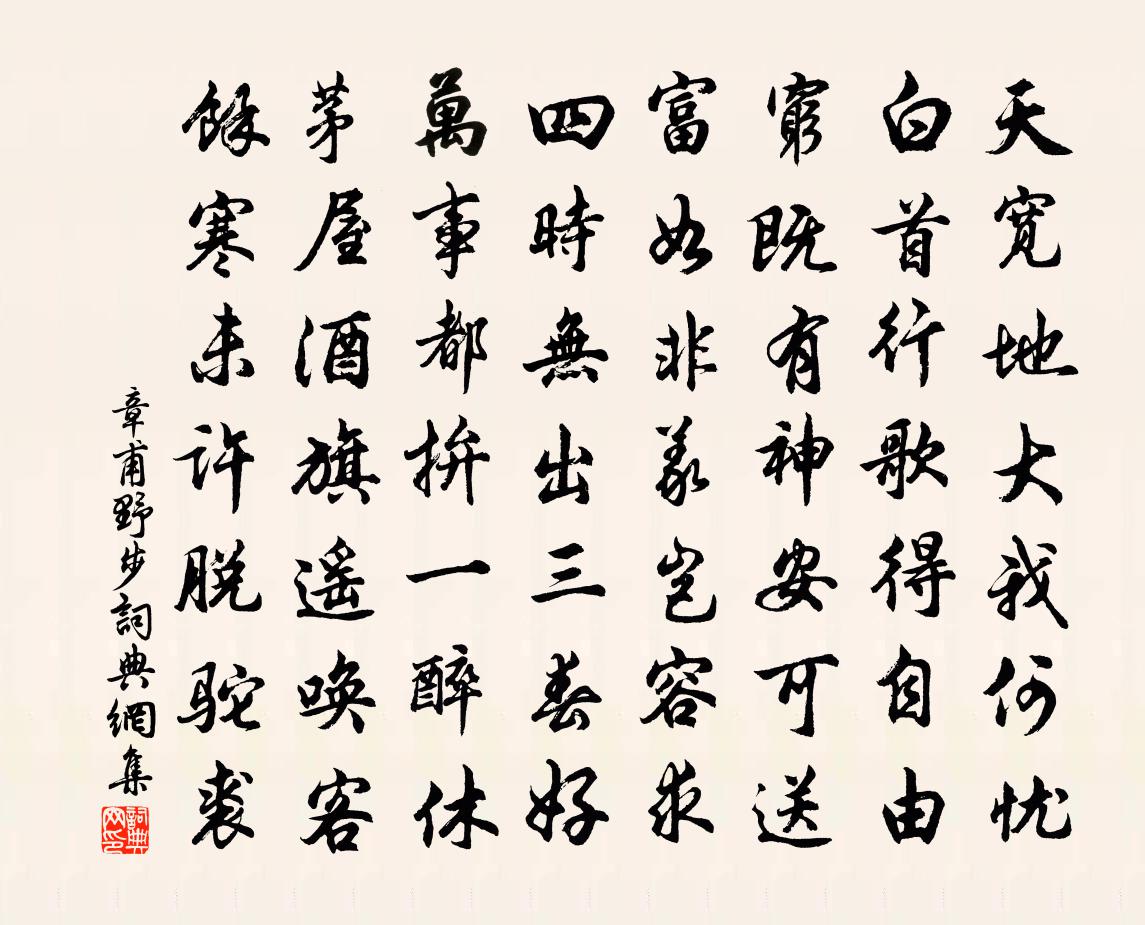 天寬地大我何忧
白首行歌得自由
窮既有神安可送
富如非義豈容求
四時無出三春好
萬事都拚一醉休
茅屋酒旗遥唤客
餘寒未许脱駝裘
章甫野步詞典網集
詞典网印